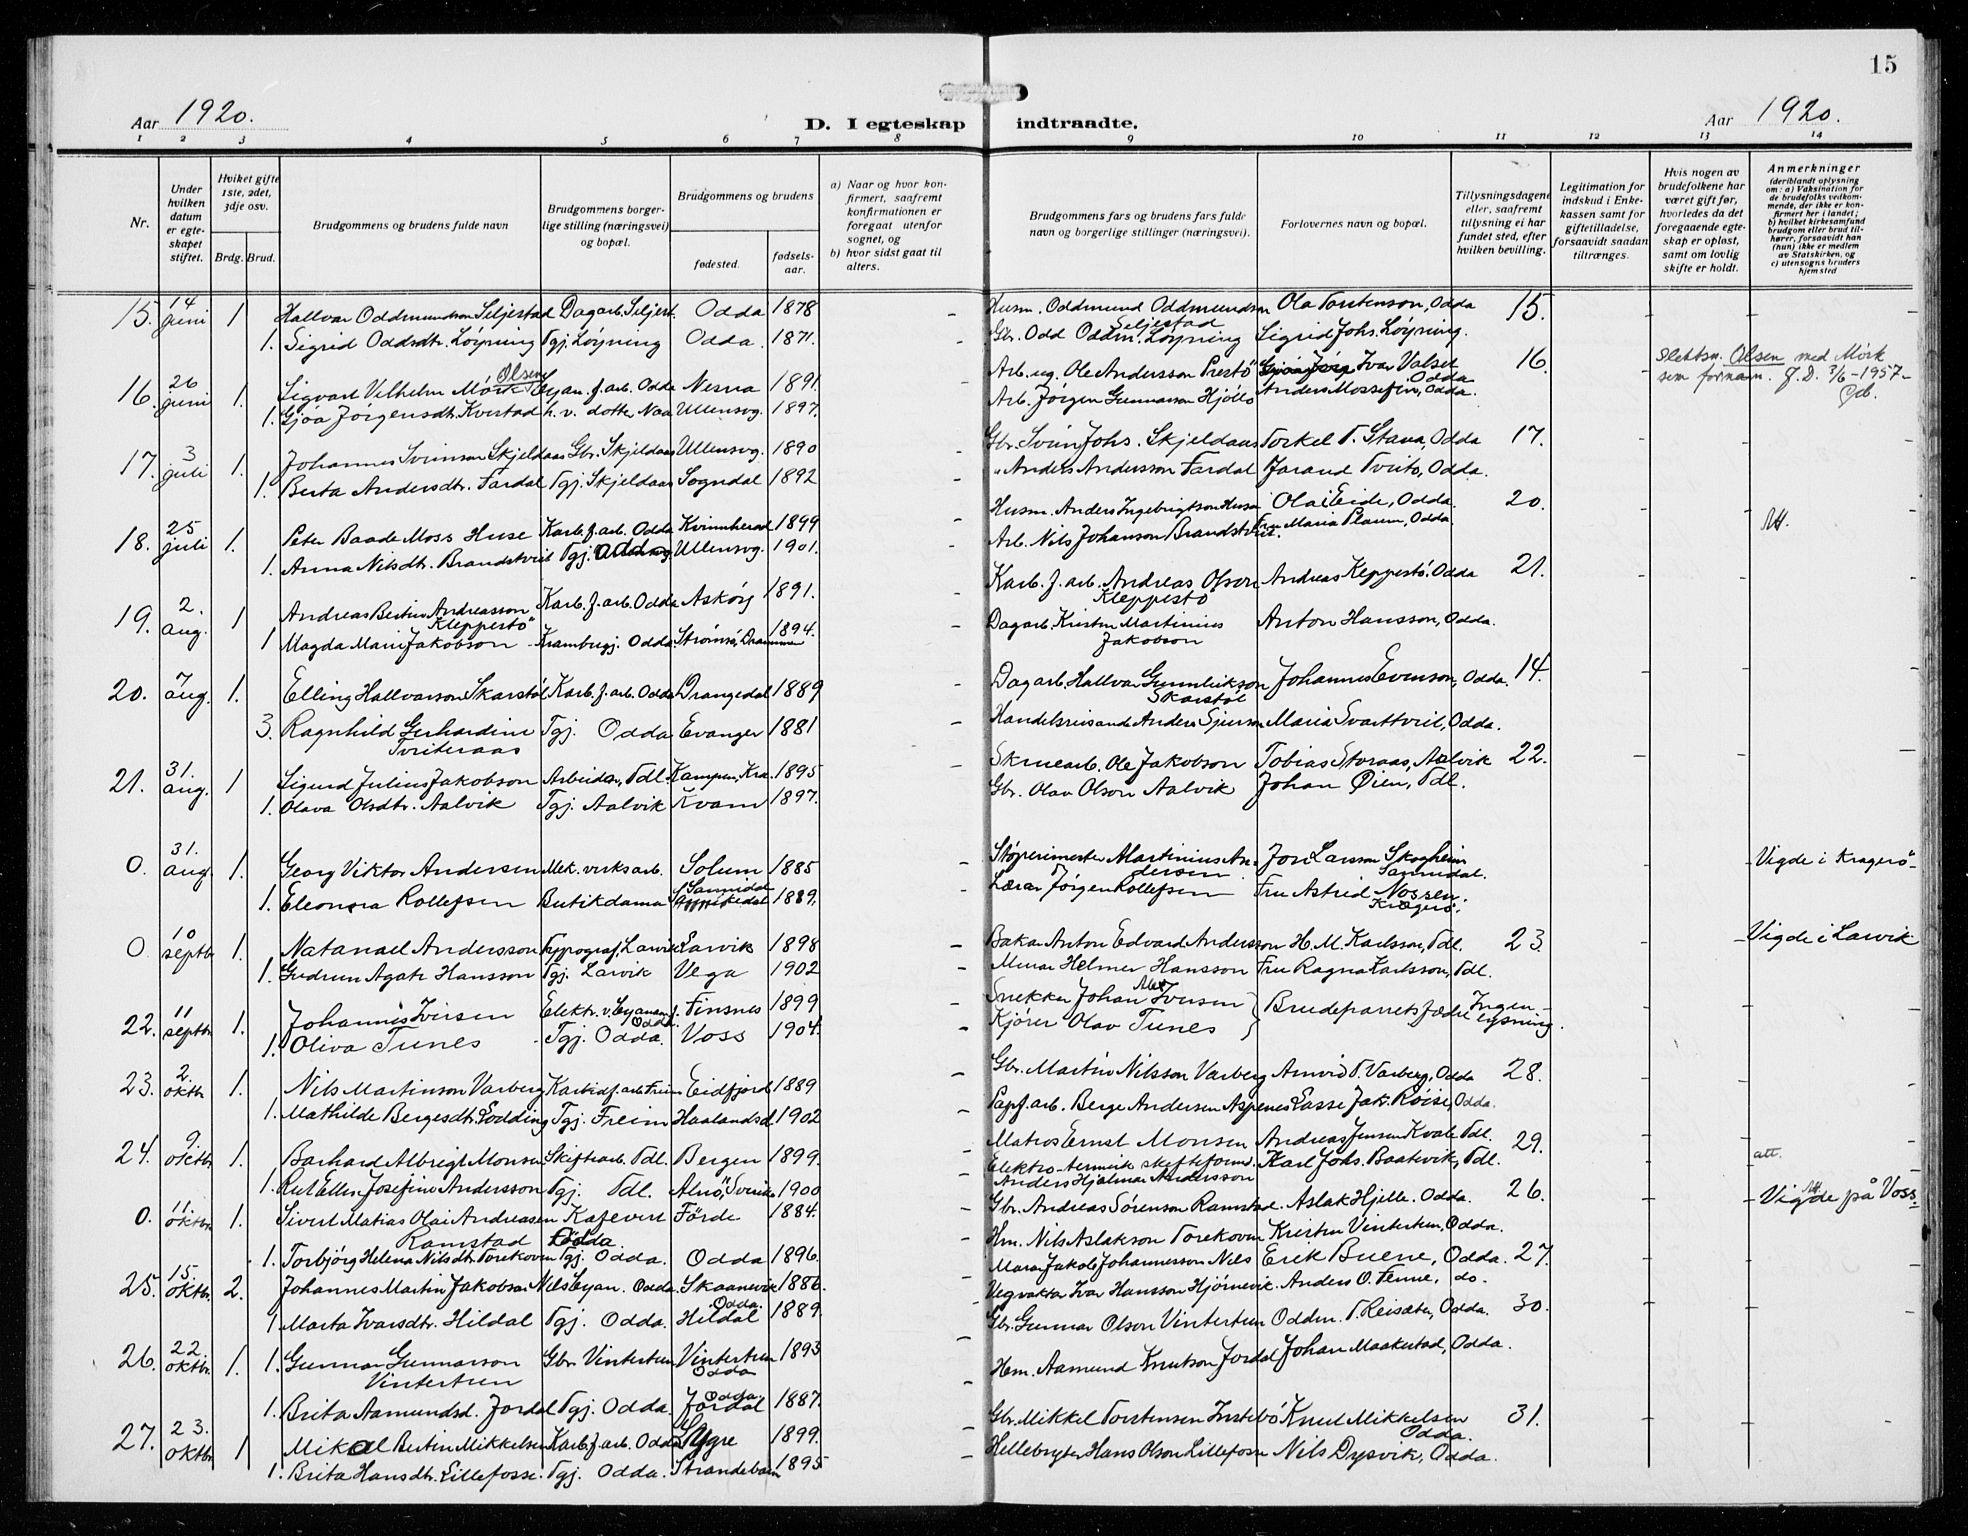 15
Aar 1920.
D. I egteskap indtraadte.
Aar 1920.
1 2 3 4 5 6 7 8 9 10 11 12 13 14
Nr.
Under hvilken datum er egteskapet stiftet.
Hviket gifte 1ste, 2det, 3dje osv.
Brdg. Brud.
Brudgommens og brudens fulde navn
Brudgommens borgerlige stilling (næringsvei) og bopæl.
Brudgommens og brudens
fødested. fødselsaar.
a) Naar og hvor konfirmert, saafremt konfirmationen er foregaat utenfor sognet, og
b) hvor sidst gaat til alters.
Brudgommens fars og brudens fars fulde navn og borgerlige stillinger (næringsvei).
Forlovernes navn og bopæl.
Tillysningsdagene eller, saafremt tillysning ei har fundet sted, efter hvilken bevilling.
Legitimation for indskud i Enkekassen samt for giftetilladelse, forsaavidt saadan tiltrænges.
Hvis nogen av brudefolkene har været gift før, hvorledes da det foregaaende egteskap er opløst, samt om lovlig skifte er holdt.
Anmerkninger
(deriblandt oplysning om: a) Vaksination for de brudefolks vedkommende, der ikke er konfirmert her i landet; b) hvilket kirkesamfund brudgom eller brud tilhører, forsaavidt han (hun) ikke er medlem av Statskirken, og c) utensogns bruders hjemsted
15. 14 juni 1 Hallvar Oddmundson Seljestad Dagarb. Seljest. Odda 1878 Husm. Oddmund Oddmundson Seljestad Ola Torstenson, Odda 15.
1. Sigrid Oddsdtr. Løyning Tgj. Løyning Odda 1871. Gbr. Odd Oddm. Løyning Sigrid Johs. Løyning.
16. 26 juni 1. Sigvart Vilhelm Mörk Olsen Cyan. f. arb. Odda Nesna 1891. Arb. ug. Ole Andersson Prestö Ivar Valset Odda 16. Slektsn. Olsen med Mörk sem fornavn. J.D. 3/6-1957-
1. Gjøa Jørgensdtr. Kvestad h. v. dotter Naa Ullensvg. 1897. Arb. Jørgen Gunnarson Hjøllo Anders Mossefin, Odda.
17. 3 juli 1. Johannes Svinson Skjeldaas Gbr. Skjeldaas Ullensvg. 1890 Gbr. Svein Johs. Skjeldaas Torkel T. Stana, Odda 17.
1. Berta Andersdtr. Fardal Tgj. Skjeldaas Sogndal 1892 " Anders Andersson Fardal Jarand Tveito, Odda.
18. 25 juli 1. Peter Baade Moss Huse Karb. f. arb. Odda Kvinnherad 1899 Husm. Anders Ingebrigtson Huse Olai Eide, Odda 20. Att.
1. Anna Nilsdtr. Brandstveit Tgj. Odda Ullensvg. 1901. Arb. Nils Johanson Brandstveit. Fru Maria Plaum, Odda.
19. 2. aug. 1 Andreas Bertin Andreasson Kleppestö Karb. f. arb. Odda Askøy 1891. Karb. f. arb. Andreas Olson Kleppestö Andreas Kleppestö. Odda 21.
1 Magda Marie Jakobson Krambugj. Odda. Strømsö, Drammen 1894. Dagarb. Kristen Martinius Jakobson Anton Hansson, Odda.
20. 7 aug. 1. Elling Hallvarson Skarstøl Karb. f. arb. Odda Drangedal 1889 Dagarb. Hallvar Gunnleikson Skarstøl Johannes Evenson, Odda. 14.
3. Ragnhild Gerhardine Tviteraas Tgj. Odda Evanger 1881 Handelsreisande Anders Sjurson Maria Svartveit, Odda.
21. 31. aug. 1 Sigurd Julius Jakobson Arbeider, Tdl. Kampen, Kra. 1895 Skruearb. Ole Jakobson Tobias Storaas, Aalvik 22.
1. Olava Olsdtr. Aalvik Tgj. Aalvik Kvam 1897. Gbr. Olav Olson Aalvik Johan Øien, Tdl.
0. 31. aug. 1. Georg Viktor Andersen Mek. verksarb. Solum 1885 Støperimester Martinius Andersen Jon Larsson Skogheim Sannidal. Vigde i Kragerö
1. Eleonora Rollefsen Butikdama Sannidal 1889. Lærar Jørgen Rollefsen Fru Astrid Nossen, Kragerö.
0 10 septbr 1. Natanael Andersson Typograf, Larvik Larvik 1898 Bakar Anton Edvard Andersson H. M. Karlsson, Tdl. 23 Vigde i Larvik
1. Gudrun Agate Hansson Tgj. Larvik Vega 1902 Murar Helmer Hansson Fru Ragna Karlsson, Tdl.
22. 11 septbr. 1. Johannes Iversen Elektr. v. Cyanam. f. Odda. Finsnes 1899 Snekker Johan Iversen Brudeparrets fædre Ingen lysning.
1. Oliva Tunes Tgj. Odda. Voss 1904. Kjører Olav Tunes
23. 2. oktbr 1. Nils Martinson Varberg Karbidf. arb. Freim Eidfjord 1889 Gbr. Martin Nilsson Varberg Arnvid T. Varberg, Odda 28.
1. Mathilde Bergesdtr. Lodding Tgj. Freim Haalandsd. 1902 Papf. arb. Berge Andersen Aspenes Lasse Jak. Røise, Odda.
24. 9. oktbr. 1. Barhard Albrigt Monsen Skiftarb. Tdl. Bergen 1899. Matros Ernst Monsen Andreas Jensen Kvale Tdl. 29. att.
1. Rut Ellen Josefine Andersson Tgj. Tdl. Alnö, Sverike 1900 Elektro-termisk skefteform. Anders Hjalmar Andersson Karl Johs. Baatevik, Tdl.
0. 11. oktbr. 1. Sivert Matias Olai Andreasen Ramstad Kafevert Odda Förde 1884. Gbr. Andreas Sørenson Ramstad. Aslak Hjelle. Odda. 26. Vigde på Voss. Att
1. Torbjörg Helena Nilsdtr. Torekoven Tgj. Odda. Odda 1896. Hm. Nils Aslakson Torekoven Kristen Vintertun, Odda.
25. 15. oktbr. 2. Johannes Martin Jakobson Nils Cyan. Odda. Skaanevik 1886. Murar Jakob Johannesson Nils Erik Buene, Odda. 27.
1 Marta Ivarsdtr. Hildal Tgj. Odda. Hildal Odda. 1889. Vegvakter Ivar Hansson Hjørnevik. Anders O. Tenne, do.
26. 22. oktbr. 1 1. Gunnar Gunnarson Vintertun Gbr. Vintertun Vintertun Odda 1893 Gbr. Gunnar Olson Vintertun Oddm. T. Reisæter, Odda. 30.
1. Brita Aamundsd. Jordal Tgj. Odda. Jordal Odda. 1887. Hem. Aamund Knutson Jordal Johan Maakestad, Odda.
27. 23. oktbr 1 Mikal Bertin Mikkelsen Karb. f. arb. Odda Sygre 1899. Gbr. Mikkel Torstensen Instebö Knut Mikkelsen Odda. 31.
1. Brita Hansdtr. Lillefosse. Tgj. Odda. Strandebarm 1895 Hellebryter Hans Olson Lillefosse Nils Dysvik, Odda.